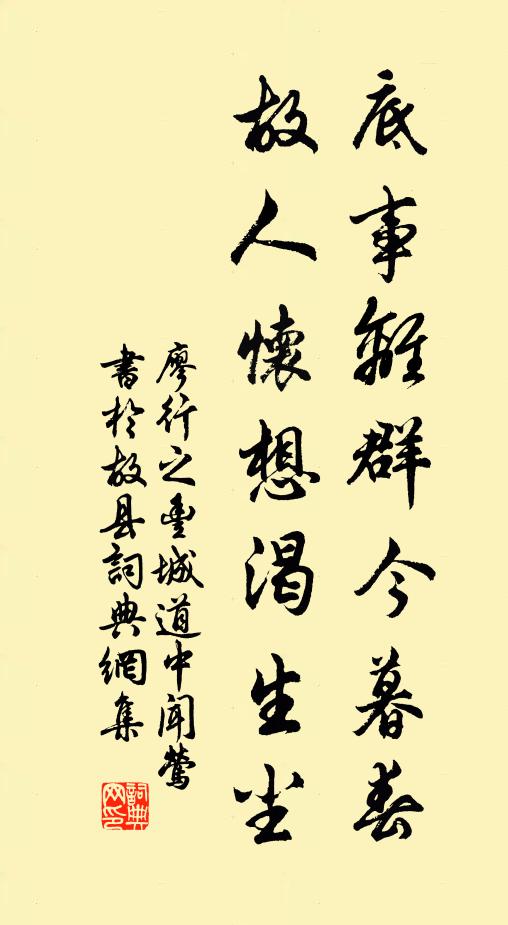 底事離群今暮春
故人懷想渴生尘
廖行之豊城道中闻鶯
書於故县詞典網集
詞典
网印